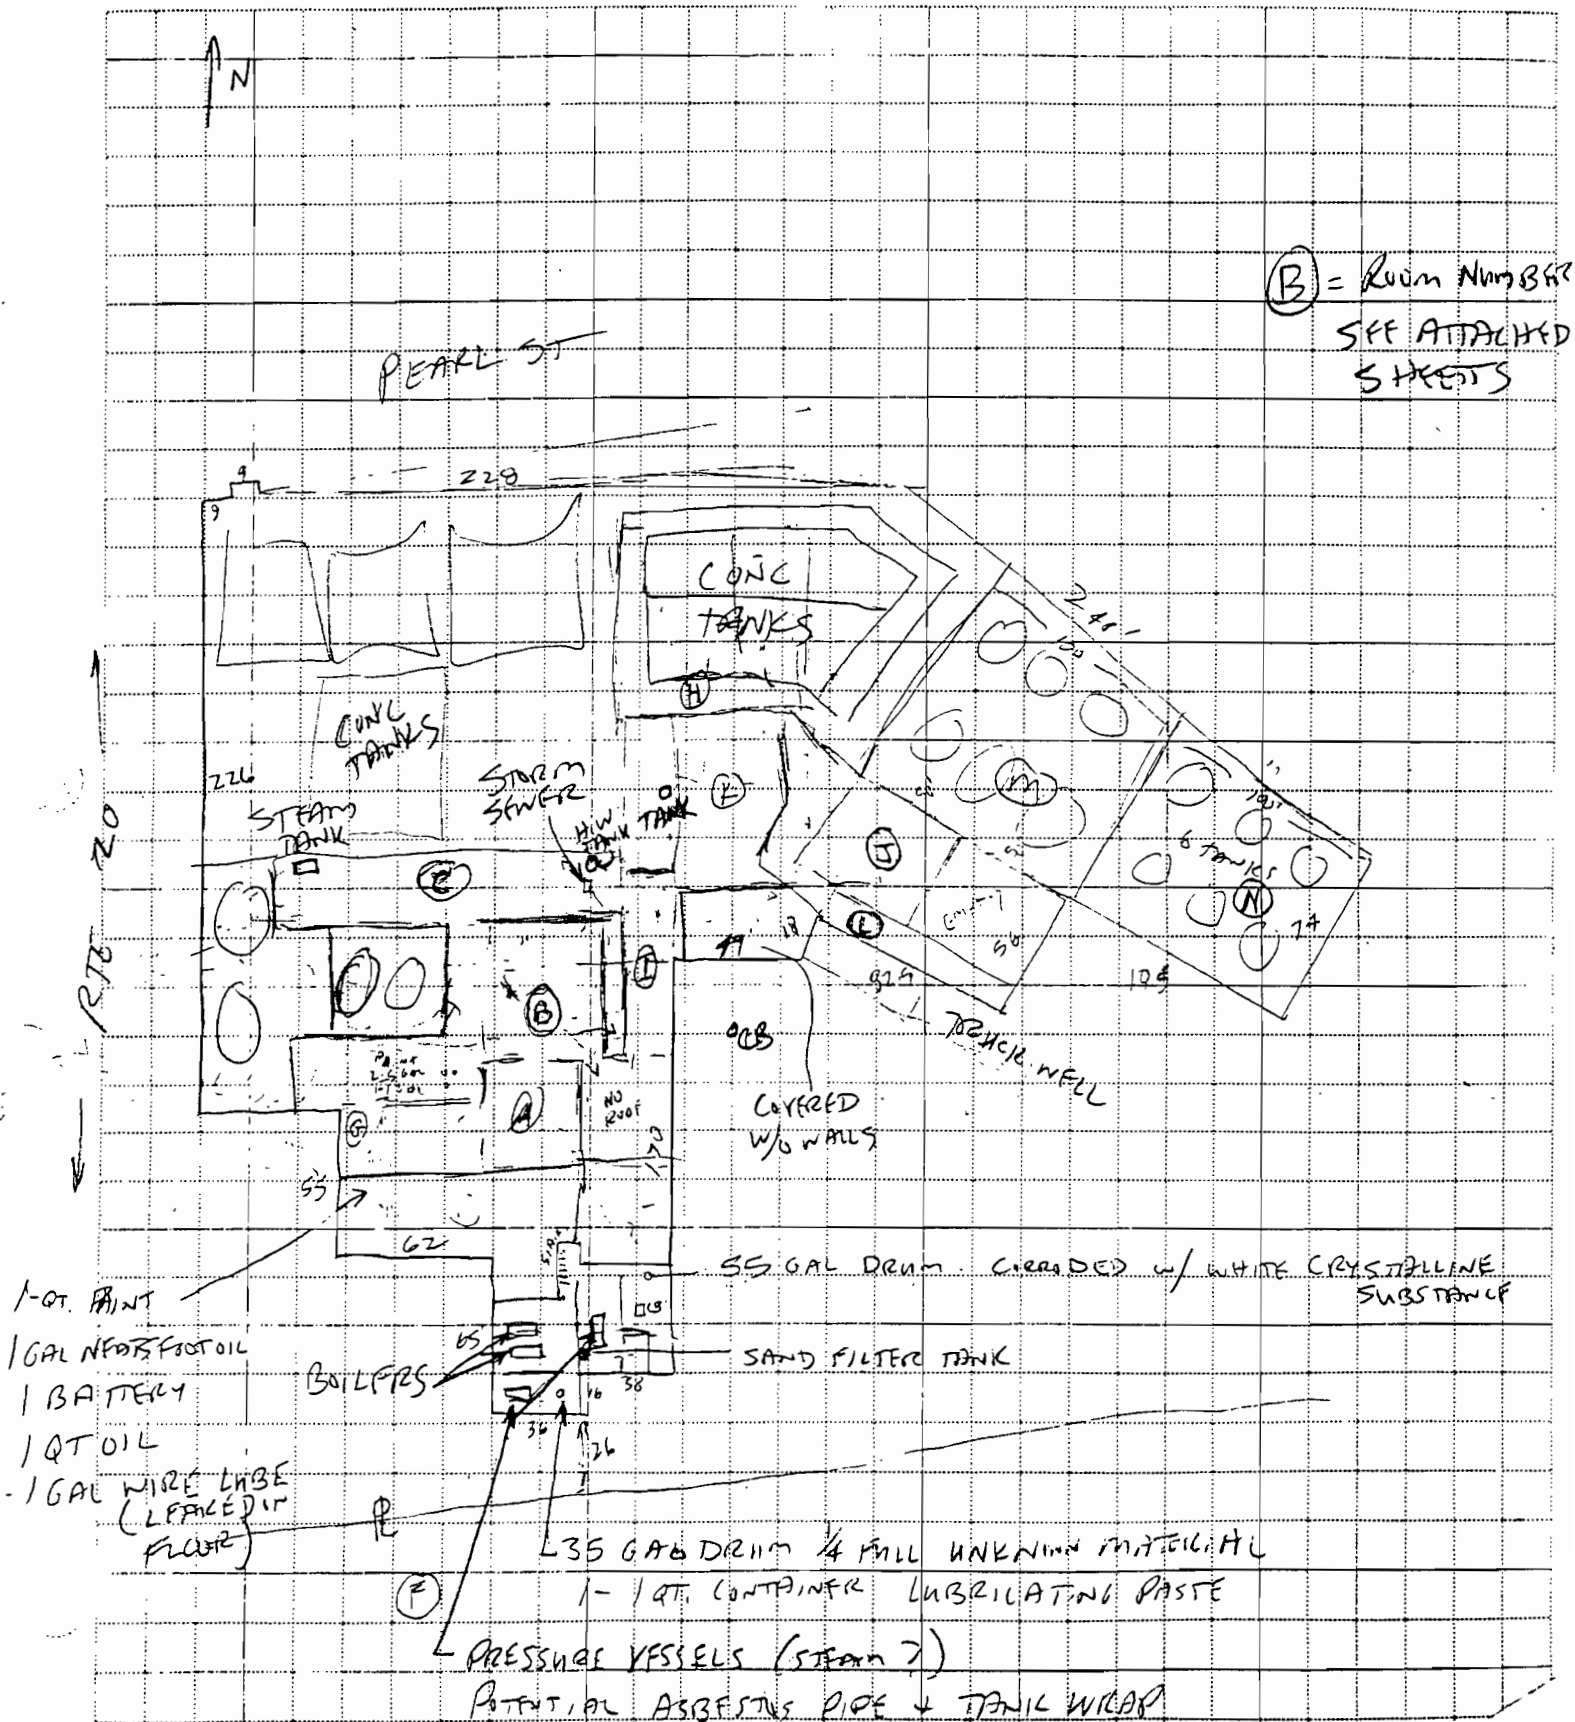 N
B = ROOM NUMBER
SEE ATTACHED
SHEETS
PEARL ST
9
228
9
CONC
TANKS
240'
150
H
CONC
TANKS
226
STORM
SEWER
K
STEAM
TANK
H/W
TANK
TANK
M
J
6 TANKS
N
74
RTE 20
L
EMPTY
56
I
49
18
825
105
B
CB
TRENCH WELL
PAINT
NO
ROOF
COVERED
W/O WALLS
G
A
170
55
62
55 GAL DRUM. CORRODED W/ WHITE CRYSTALLINE
SUBSTANCE
1-QT. PAINT
1 GAL NEATSFOOT OIL
1 BATTERY
1 QT OIL
- 1 GAL WIRE LUBE
(LEAKED IN
FLOOR)
CB
65
BOILERS
SAND FILTER TANK
38
16
36
26
PL
35 GAL DRUM 1/4 FULL UNKNOWN MATERIAL
1- 1 QT. CONTAINER LUBRICATING PASTE
F
PRESSURE VESSELS (STEAM ?)
POTENTIAL ASBESTOS PIPE + TANK WRAP